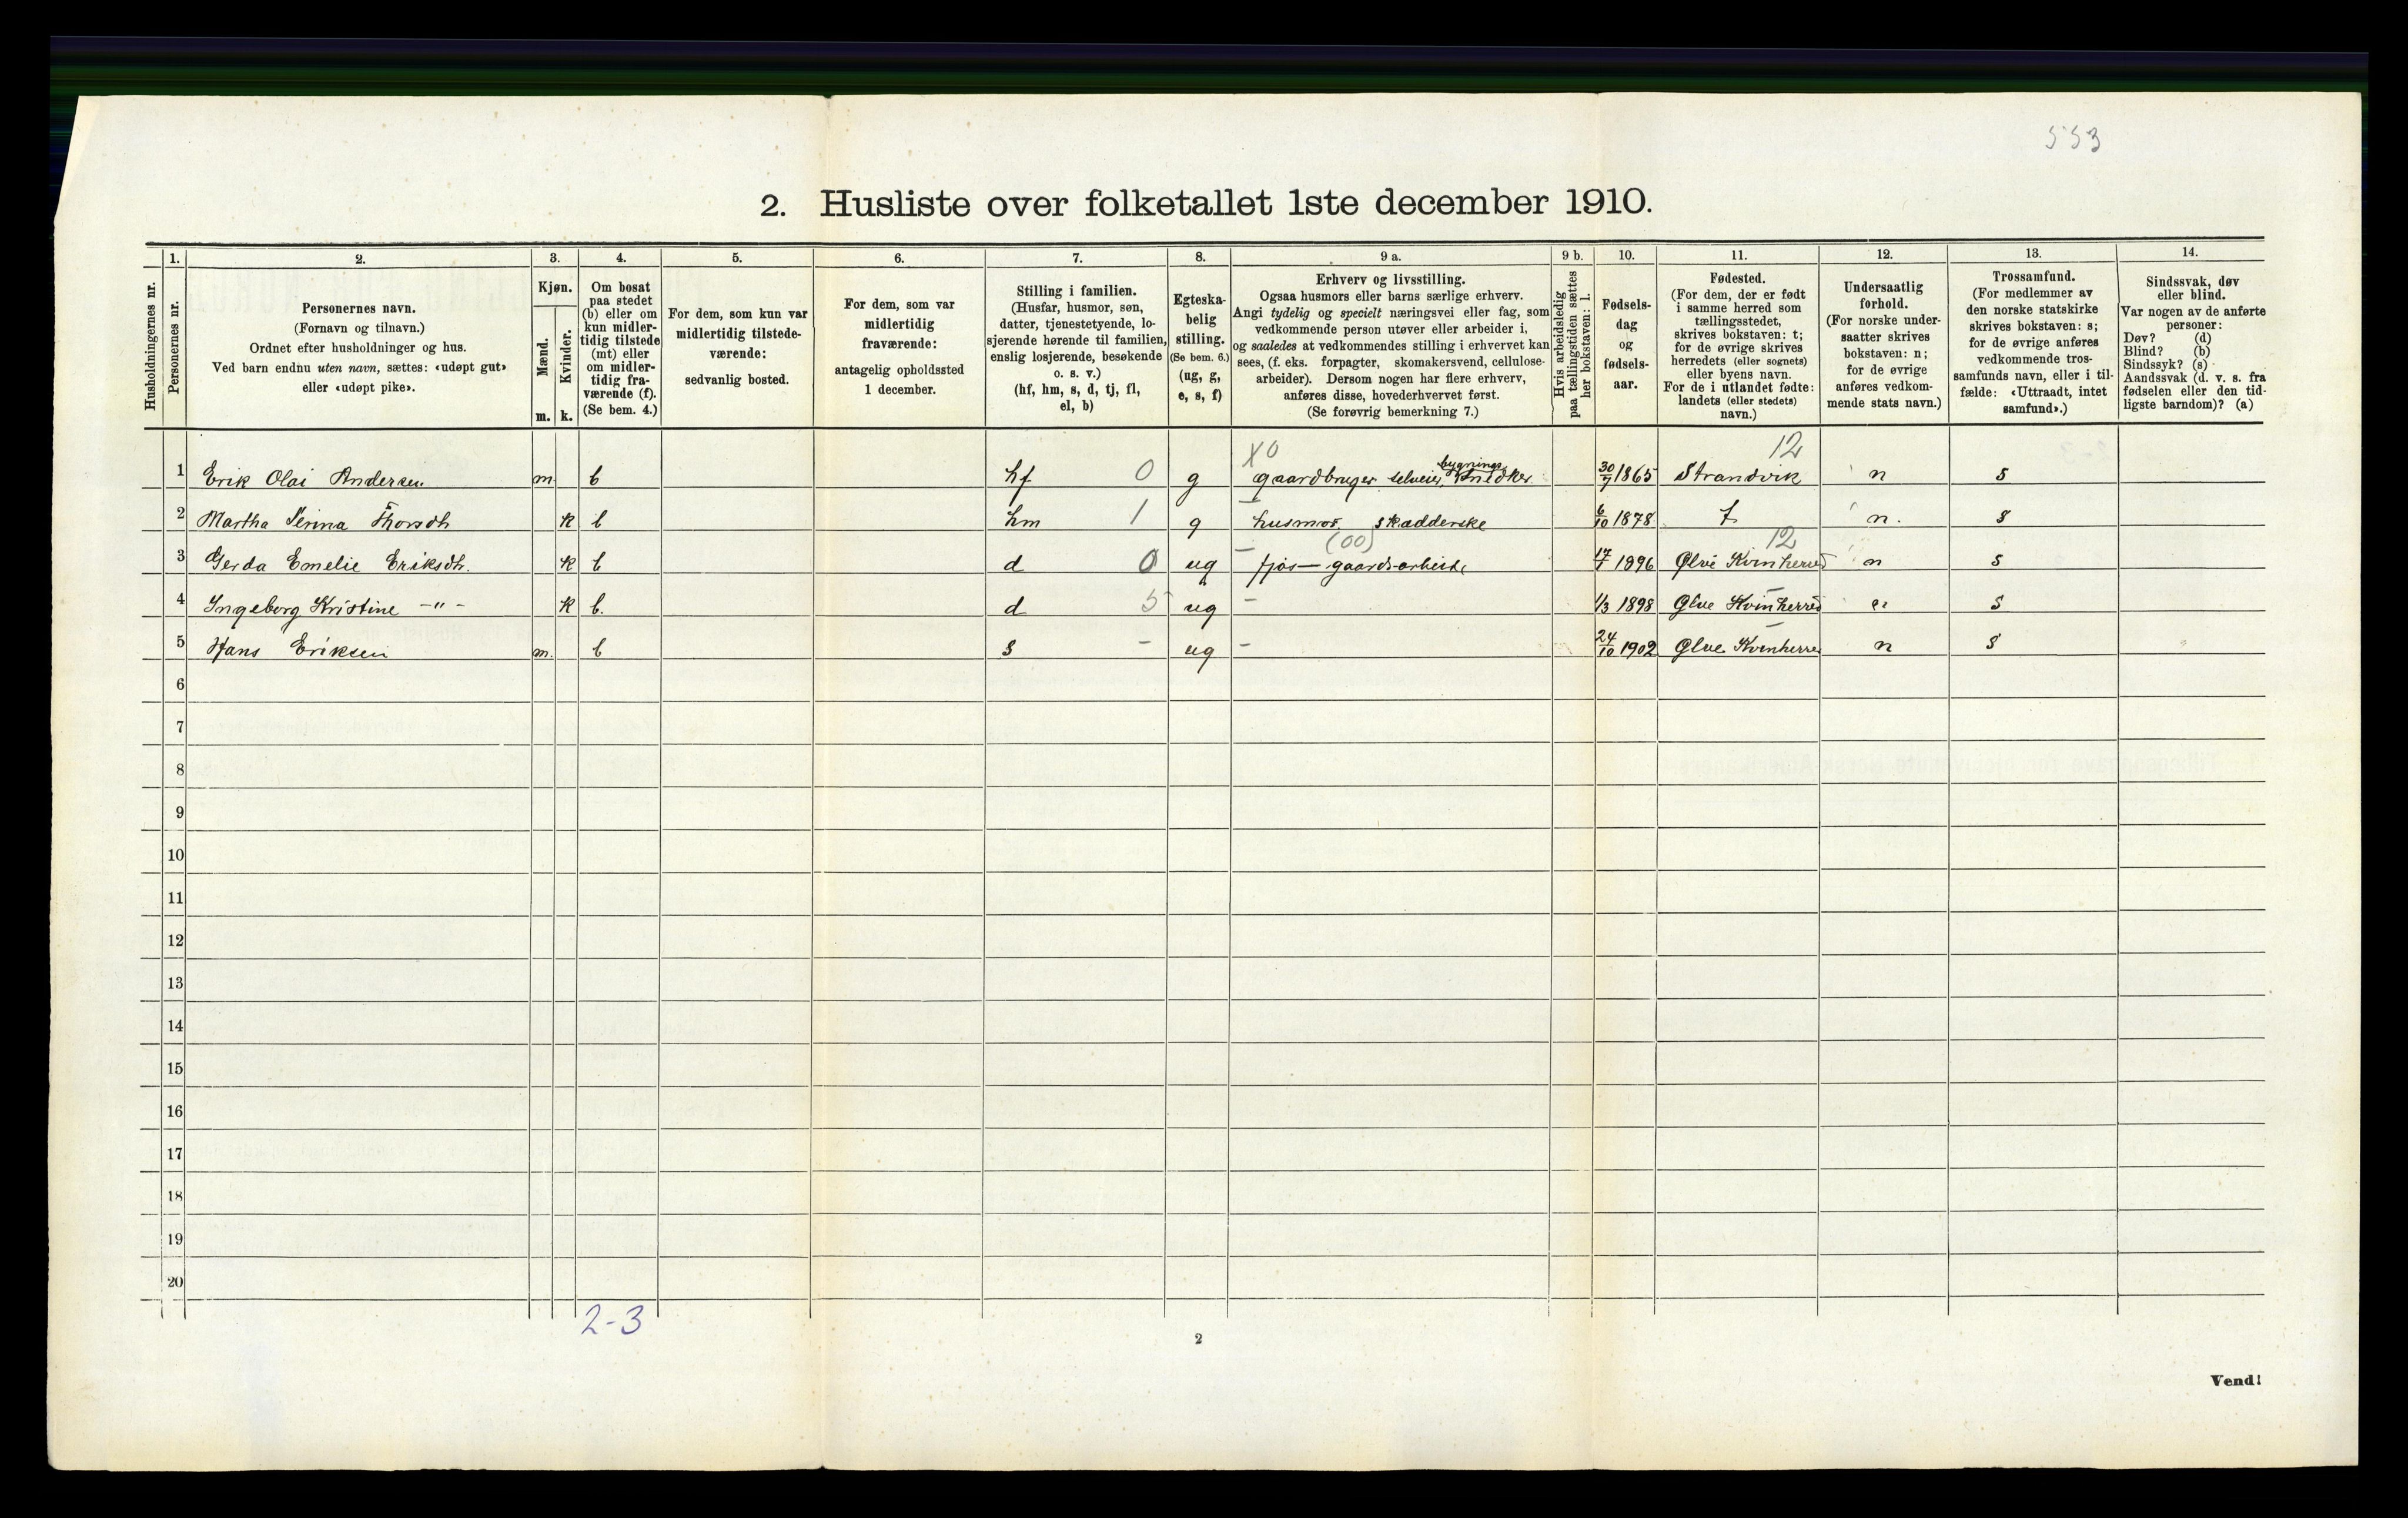 553
2. Husliste over folketallet 1ste december 1910.
Husholdningernes nr.
1.
Personernes nr.
2.
Personernes navn.
(Fornavn og tilnavn.)
Ordnet efter husholdninger og hus.
Ved barn endnu uten navn, sættes: «udøpt gut»
eller «udøpt pike».
3.
Kjøn.
Mænd.
Kvinder.
m.
k.
4.
Om bosat
paa stedet
(b) eller om
kun midler-
tidig tilstede
(mt) eller
om midler-
tidig fra-
værende (f).
(Se bem. 4.)
5.
For dem, som kun var
midlertidig tilstede-
værende:
sedvanlig bosted.
6.
For dem, som var
midlertidig
fraværende:
antagelig opholdssted
1 december.
7.
Stilling i familien.
(Husfar, husmor, søn,
datter, tjenestetyende, lo-
sjerende hørende til familien,
enslig losjerende, besøkende
o. s. v.)
(hf, hm, s, d, tj, fl,
el, b)
8.
Egteska-
belig
stilling.
(Se bem. 6.)
(ug, g,
e, s, f)
9 a.
Erhverv og livsstilling.
Ogsaa husmors eller barns særlige erhverv.
Angi tydelig og specielt næringsvei eller fag, som
vedkommende person utøver eller arbeider i,
og saaledes at vedkommendes stilling i erhvervet kan
sees, (f. eks. forpagter, skomakersvend, cellulose-
arbeider). Dersom nogen har flere erhverv,
anføres disse, hovederhvervet først.
(Se forøvrig bemerkning 7.)
9 b.
Hvis arbeidsledig
paa tællingstiden sættes
her bokstaven: l.
10.
Fødsels-
dag
og
fødsels-
aar.
11.
Fødested.
(For dem, der er født
i samme herred som
tællingsstedet,
skrives bokstaven: t;
for de øvrige skrives
herredets (eller sognets)
eller byens navn.
For de i utlandet fødte:
landets (eller stedets)
navn.)
12.
Undersaatlig
forhold.
(For norske under-
saatter skrives
bokstaven: n;
for de øvrige
anføres vedkom-
mende stats navn.)
13.
Trossamfund.
(For medlemmer av
den norske statskirke
skrives bokstaven: s;
for de øvrige anføres
vedkommende tros-
samfunds navn, eller i til-
fælde: «Uttraadt, intet
samfund».)
14.
Sindssvak, døv
eller blind.
Var nogen av de anførte
personer:
Døv? (d)
Blind? (b)
Sindssyk? (s)
Aandssvak (d. v. s. fra
fødselen eller den tid-
ligste barndom)? (a)
X0 12
1 Erik Olai Andersen m b hf 0 g gaardbruger selveier, bygnings snedker 30/7 1865 Strandvik n s
2 Martha Serina Thorsdh k b hm 1 g husmor skadderske 6/10 1878 t n. s
(00) 12
3 Gerda Emelie Eriksdh. k b d 0 ug - fjøs- gaardsarbeide 1896 Ølve Kvinherred n s
4 Ingeborg Kristine -"- k b. d 5 ug - 1/3 1898 Ølve Kvinherred s
5 Hans Eriksen m. b s - ug - 24/10 1902 Ølve Kvinherred n s
6
7
8
9
10
11
12
13
14
15
16
17
18
19
20
2-3
2
Vend!